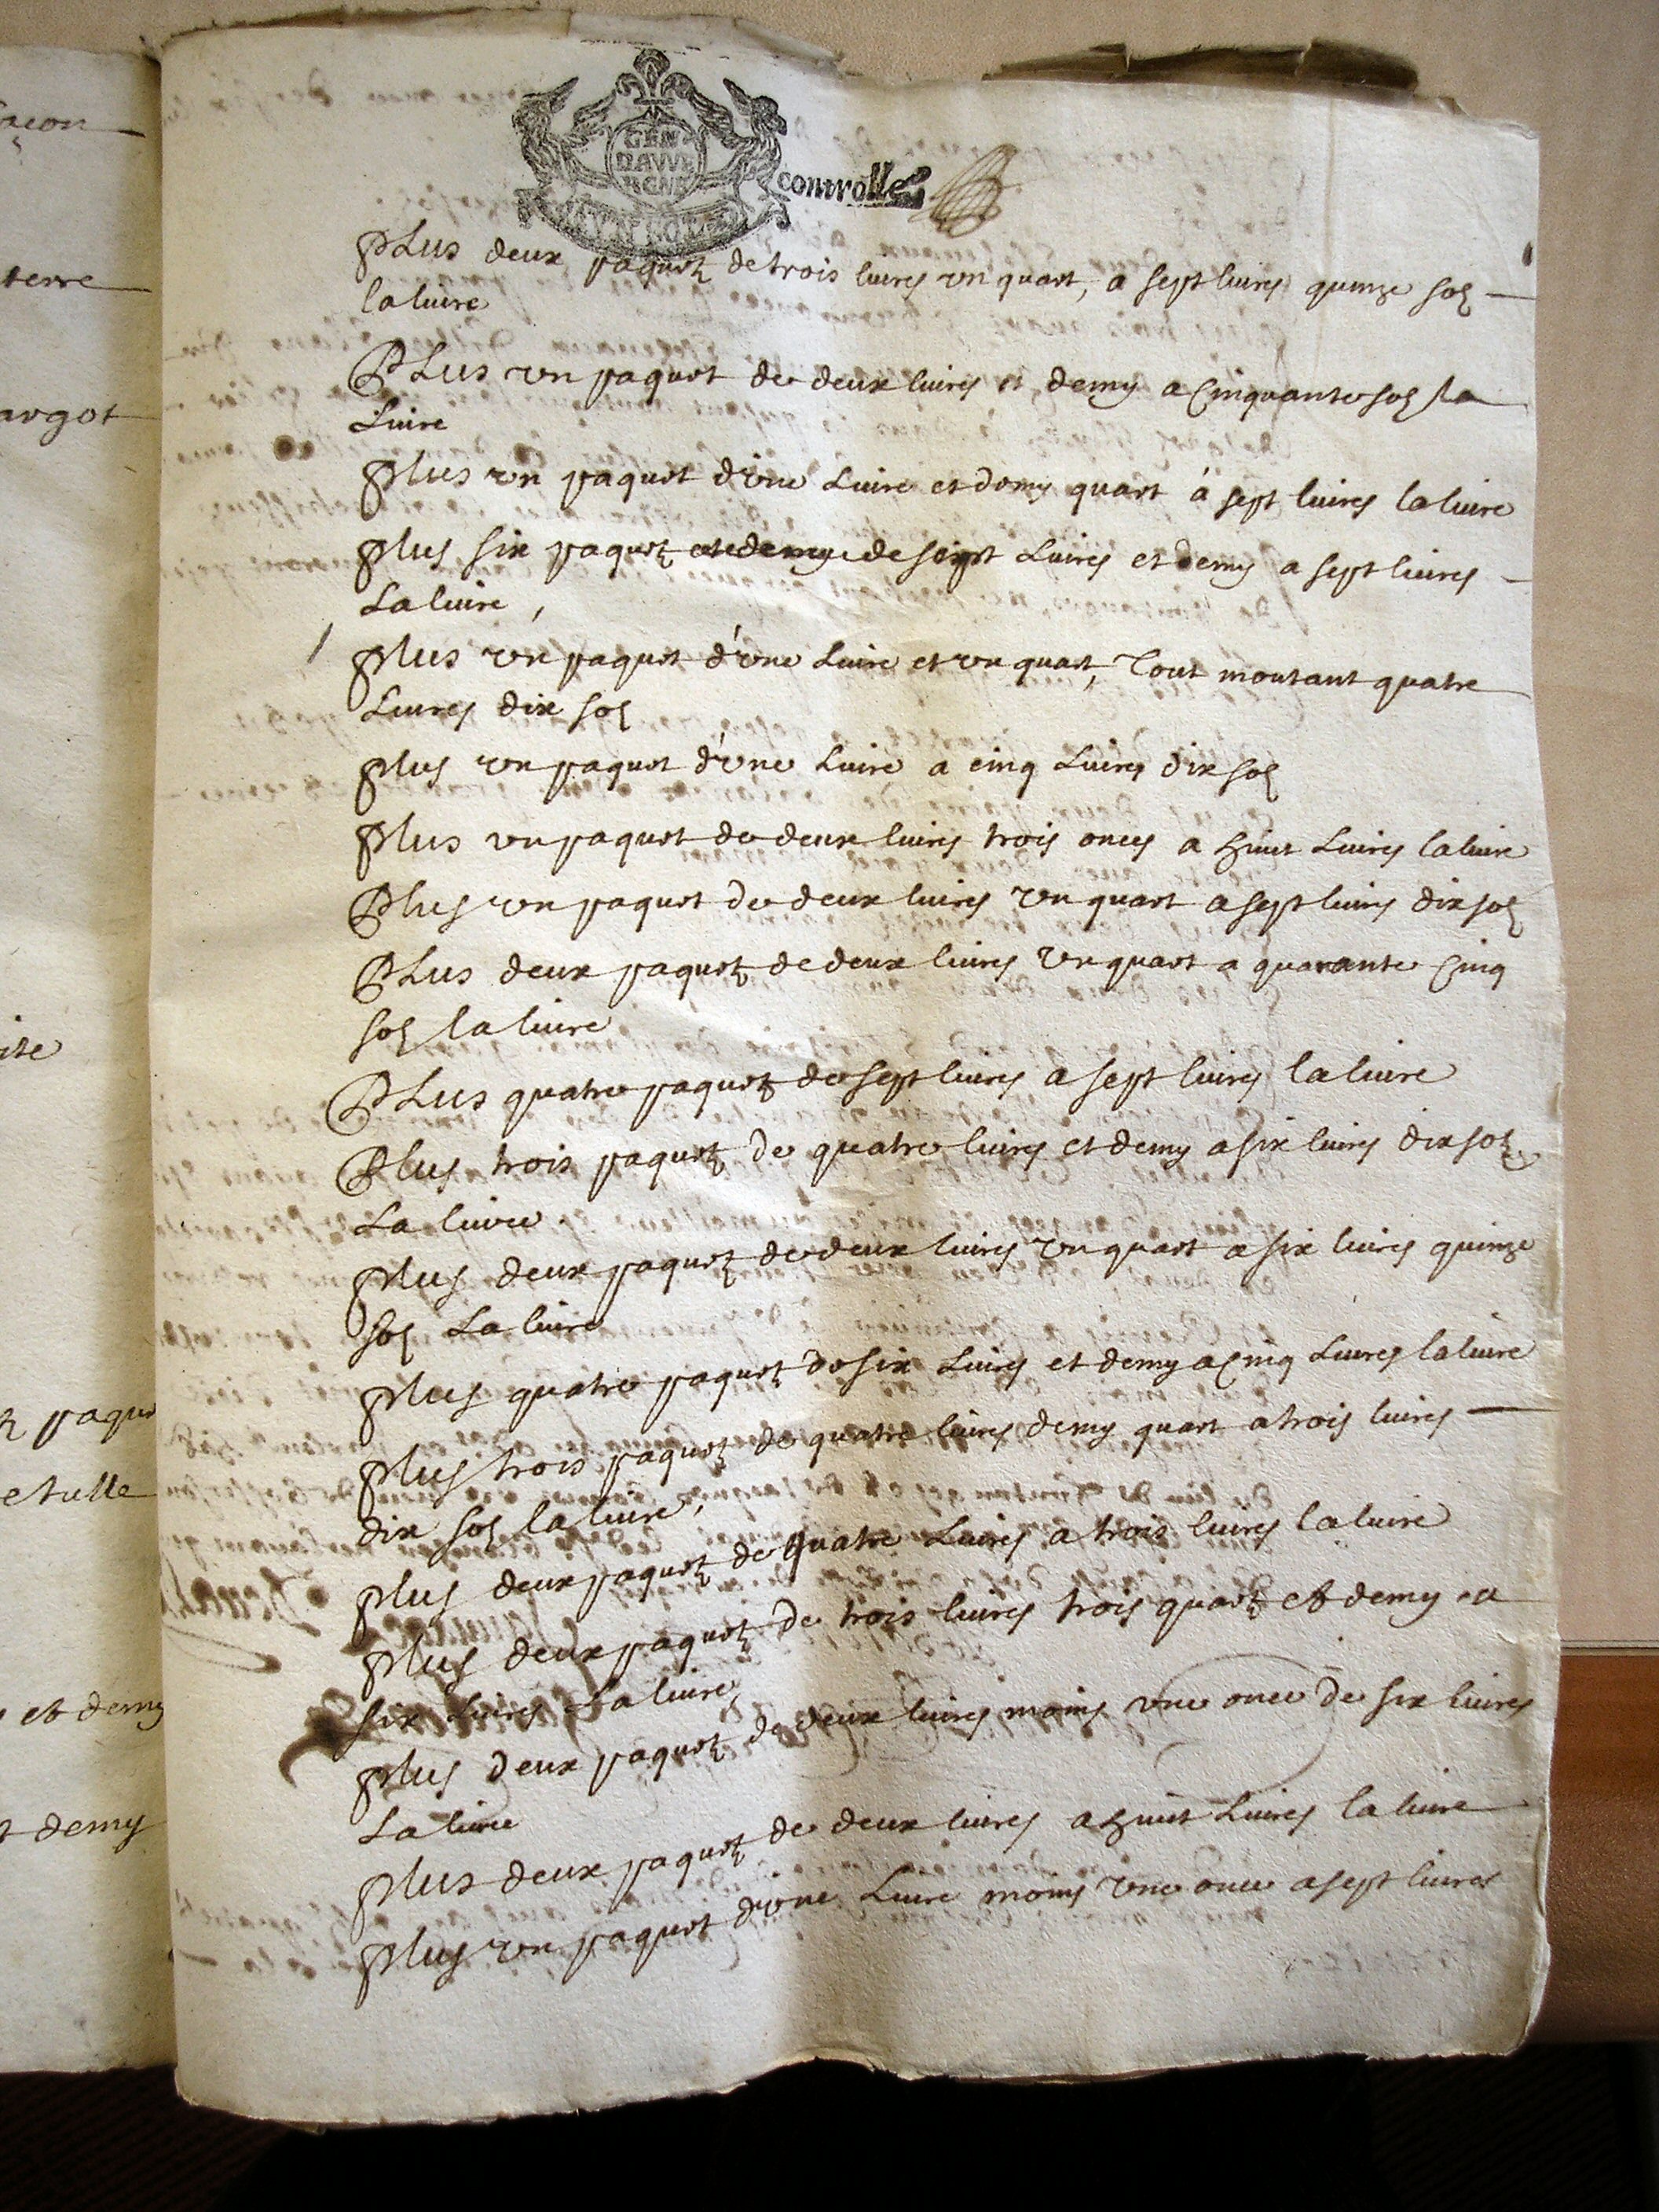 acon
terre
argot
ite
paque
et tulle
et demy
t demy
GEN
DAVVE
RGNE
controllé
Plus deux paquetz de trois livres un quart, a sept livres quinze solz
la livre
Plus un paquet de deux livres et demy a Cinquante solz la
Livre
Plus un paquet d'une Livre et demy quart á sept livres la livre
Plus six paquetz de sept Livres et demy a sept livres
La livre,
Plus un paquet d'une Livre et un quart, Tout montant quatre
Livres dix solz
Plus un paquet d'une Livre a cinq Livres dix solz
Plus un paquet de deux livres trois onces a huit Livres la livre
Plus un paquet de deux livres un quart a sept livres dix solz
Plus deux paquetz de deux livres un quart a quarante Cinq
solz la livre
Plus quatre paquetz de sept livres a sept livres la livre
Plus trois paquetz de quatre livres et demy a six livres dix solz
La livre
Plus deux paquetz de deux livres un quart a six livres quinze
solz La livre
Plus quatre paquetz de six Livres et demy a Cinq Livres la livre
Plus trois paquetz de quatre livres demy quart a trois livres
dix solz la livre,
Plus deux paquetz de quatre Livres a trois livres la livre
Plus deux paquetz de trois livres trois quartz et demy a
six Livres La livre
Plus deux paquetz de deux livres moins une once de six livres
La livre
Plus deux paquetz de deux livres a huit Livres la livre
Plus un paquet d'une Livre moins une once a sept livres